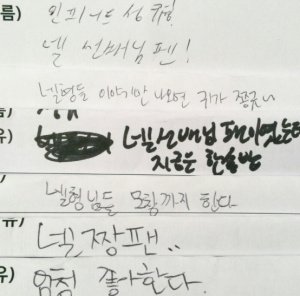 름) 인피니트 성규!
넬 선배님 팬!
넬형들 이야기만 나오면 귀가 쫑긋
유) 넬선배님 팬이었는데
지금은 한솥밥
넬형님들 모창까지 한다
ㅠ) 넬 짱팬..
유) 엄청 좋아한다.